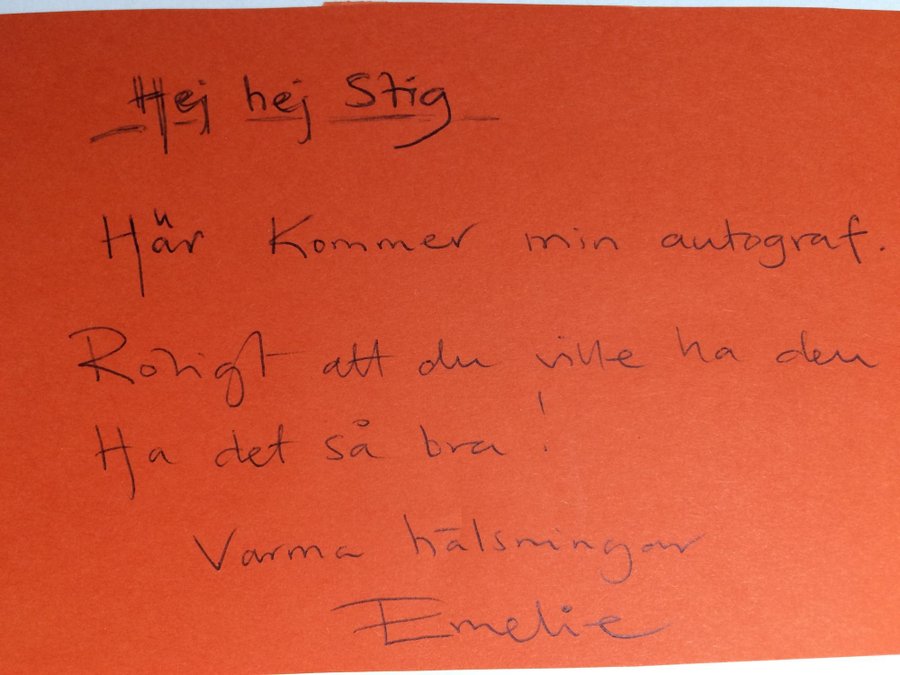 Hej hej Stig
Här Kommer min autograf.
Roligt att du ville ha den
Ha det så bra!
Varma hälsningar
Emelie